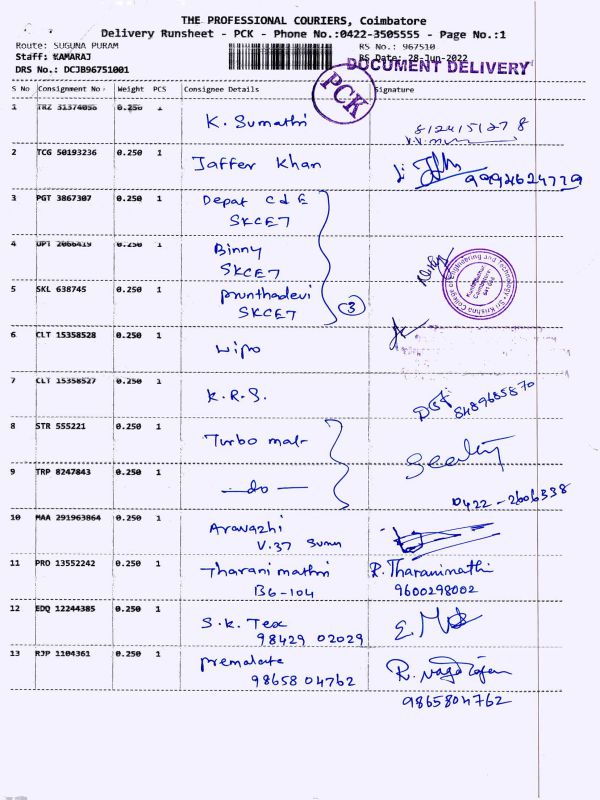 THE PROFESSIONAL COURIERS, Coimbatore
Delivery Runsheet - PCK - Phone No.:0422-3505555 - Page No.:1
Route: SUGUNA PURAM
RS No.: 967510
Staff: KAMARAJ
RS Date: 28-Jun-2022
DOCUMENT DELIVERY
DRS No.: DCJB96751001
PCK
S No Consignment No. Weight PCS Consignee Details Signature
1 TRZ 31374056 0.250 1
K. Sumathi
8124151278
2 TCG 50193236 0.250 1 Jaffer Khan
9994624779
3 PGT 3867307 0.250 1 Depat C d E
SKCET
4 UPT 2066419 0.250 1 Binny
SKCET
Sri Krishna College of Engineering and Technology
Kuniamuthur
Coimbatore
641 008
5 SKL 638745 0.250 1 prunthadevi
SKCET
3
6 CLT 15358528 0.250 1
wipo
7 CLT 15358527 0.250 1
K.R.S.
8489685870
8 STR 555221 0.250 1
Turbo mat
9 TRP 8247843 0.250 1
do
0422-2606338
10 MAA 291963864 0.250 1 Aravazhi
V.37
11 PRO 13552242 0.250 1 Tharani mathi R. Tharanimathi
B6-104 9600298002
12 EDQ 12244385 0.250 1
S.K. Tex
98429 02029
13 RJP 1104361 0.250 1 premalate
98658 04762
R. Nagarajan
9865804762